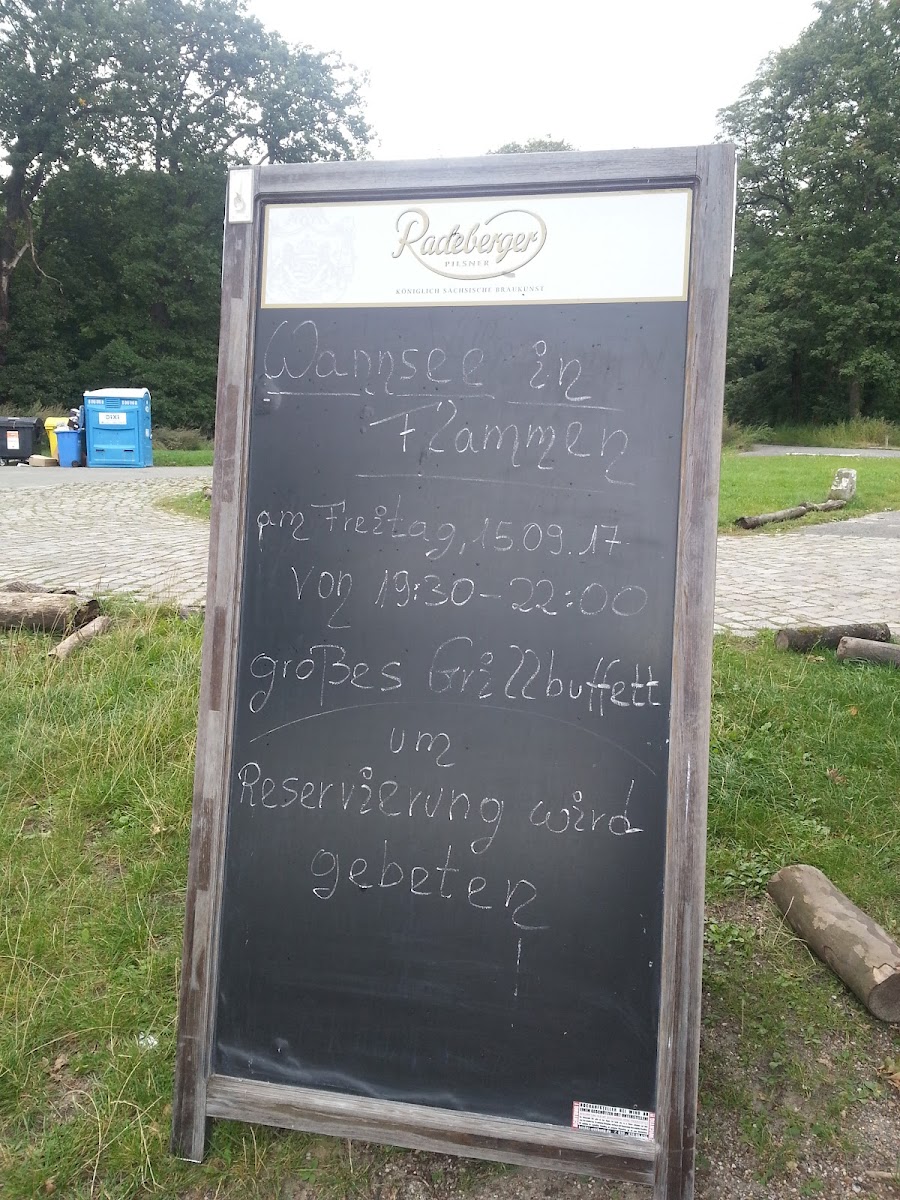 Radeberger
PILSNER
KÖNIGLICH SÄCHSISCHE BRAUKUNST
Wannsee in
Flammen
am Freitag, 15.09.17
von 19:30-22:00
großes Grillbuffett
um
Reservierung wird
gebeten
DIXI